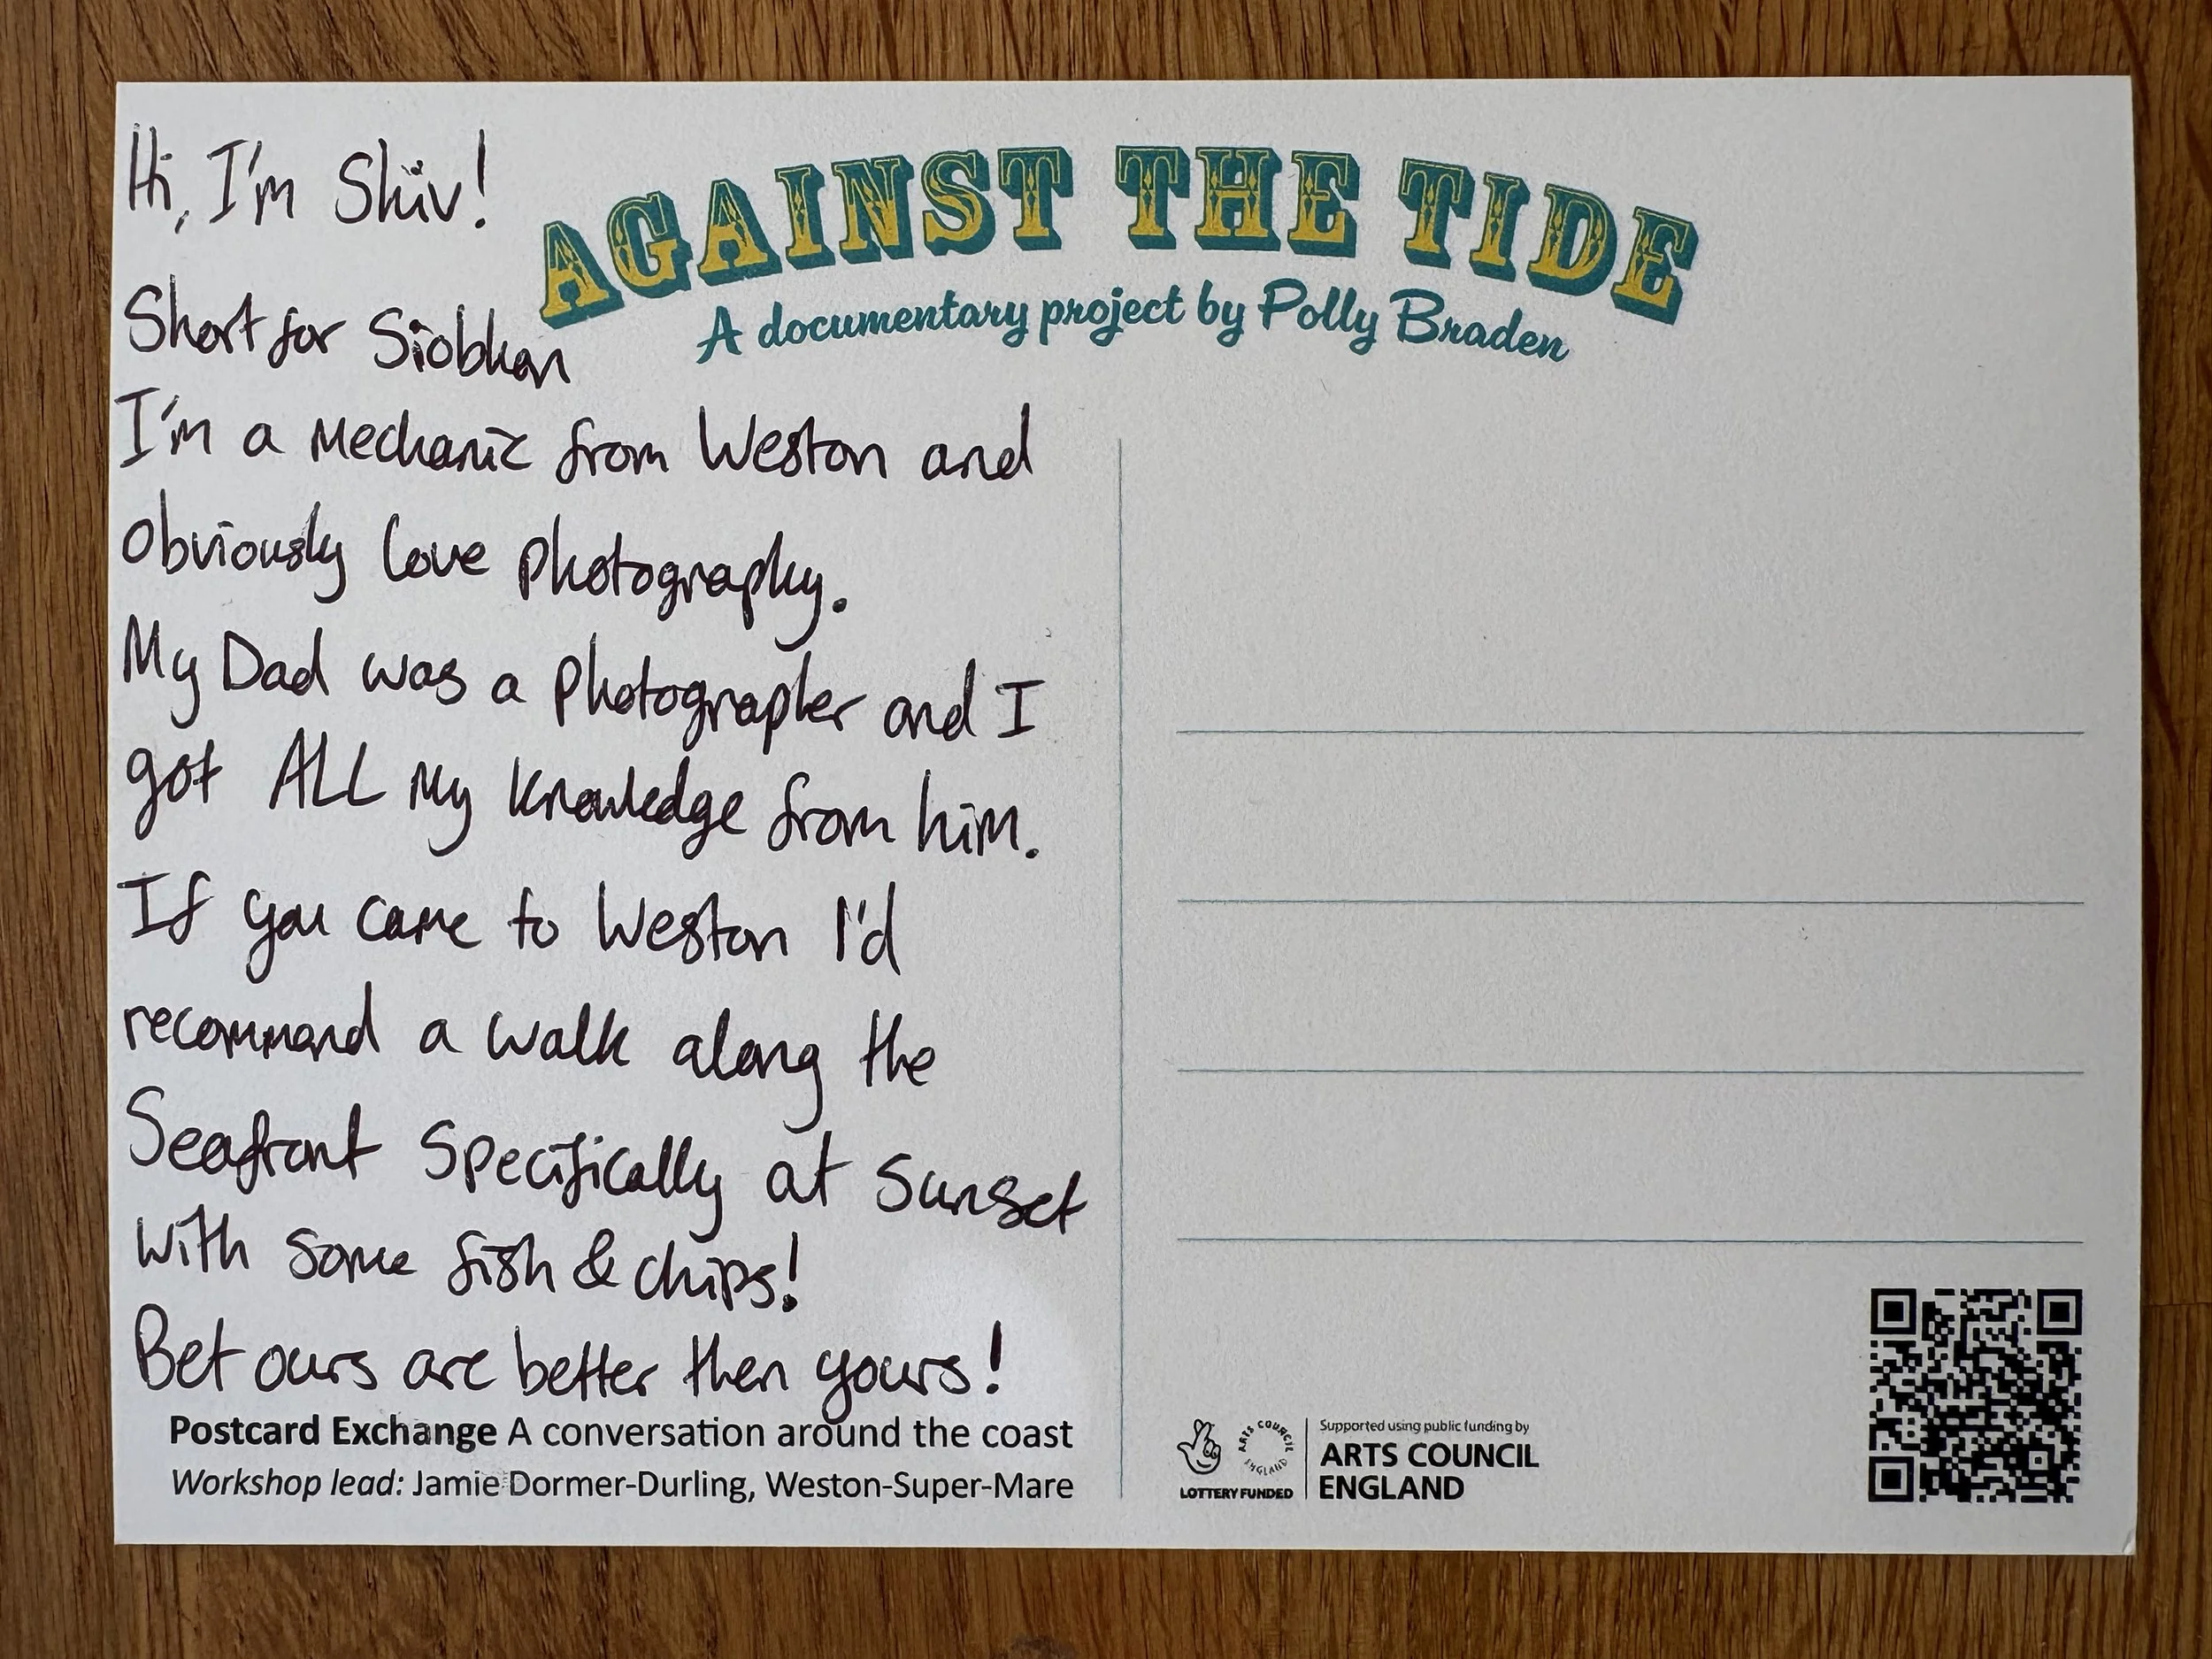 Hi, I'm Shiv!
Short for Siobhan
I'm a Mechanic from Weston and
Obviously love photography.
My Dad was a photographer and I
got ALL My Knowledge from him.
If you came to Weston I'd
recommend a walk along the
Seafront Specifically at Sunset
With Some fish & chips!
Bet ours are better then yours!
Postcard Exchange A conversation around the coast
Workshop lead: Jamie Dormer-Durling, Weston-Super-Mare
AGAINST THE TIDE
A documentary project by Polly Braden
ARTS COUNCIL ENGLAND
LOTTERY FUNDED
Supported using public funding by
ARTS COUNCIL
ENGLAND